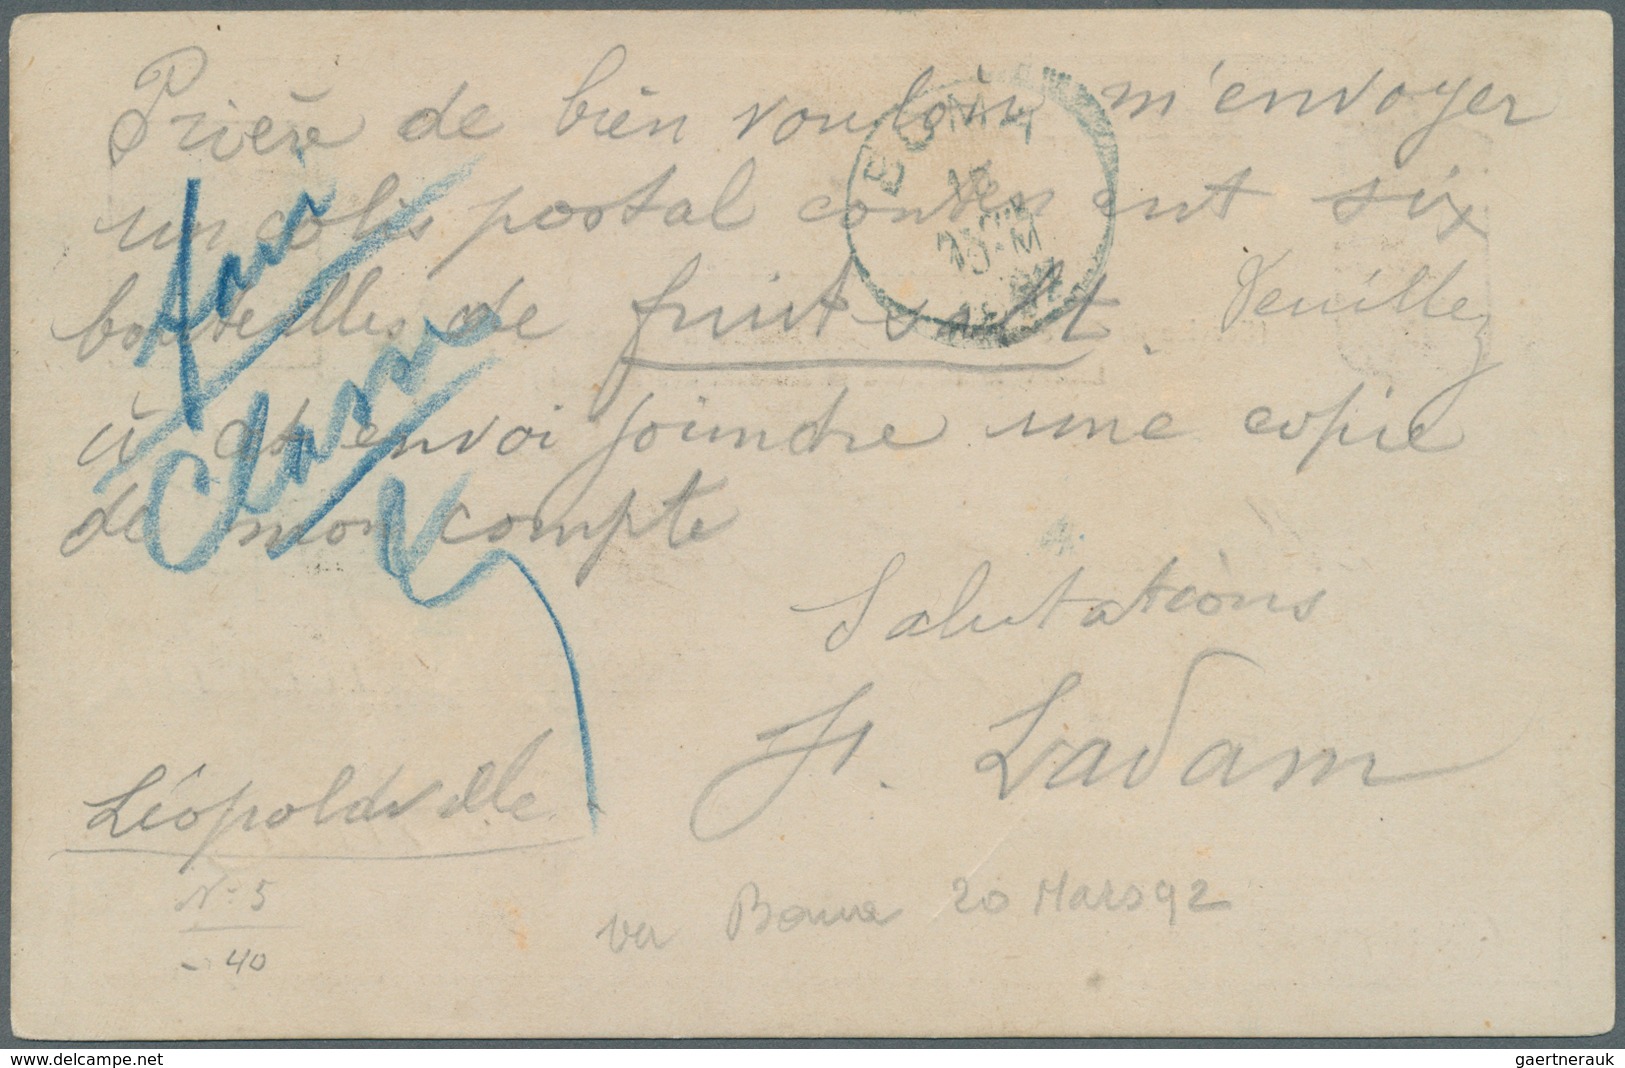 Prière de bien vouloir m'envoyer
un colis postal contenant six
bouteilles de fruit salt. Veuillez
à cet envoi joindre une copie
de mon compte
Salutations
Ladam
Léopoldville
N° 5
- 40
20 Mars 92
BOMA
www.delcampe.net
gaertnerauk